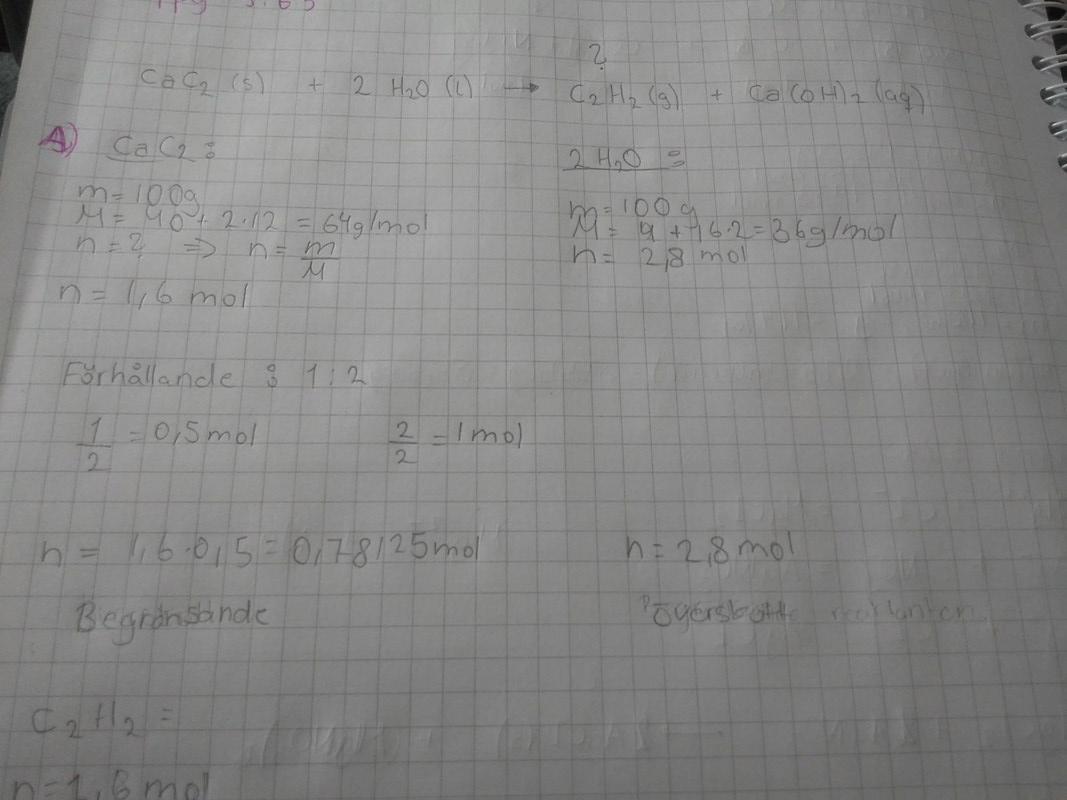 ?
CaC2 (s) + 2 H2O (l) → C2H2 (g) + Ca(OH)2 (aq)
A) CaC2:
m = 100g
M = 40 + 2·12 = 64g/mol
n = ? => n = m/M
n = 1,6 mol
2 H2O =
m = 100 g
M = 4 + 16·2 = 36g/mol
n = 2,8 mol
Förhållande : 1:2
1/2 = 0,5 mol 2/2 = 1 mol
n = 1,6·0,5 = 0,78125 mol n = 2,8 mol
Begränsande
C2H2 =
n = 1,6 mol